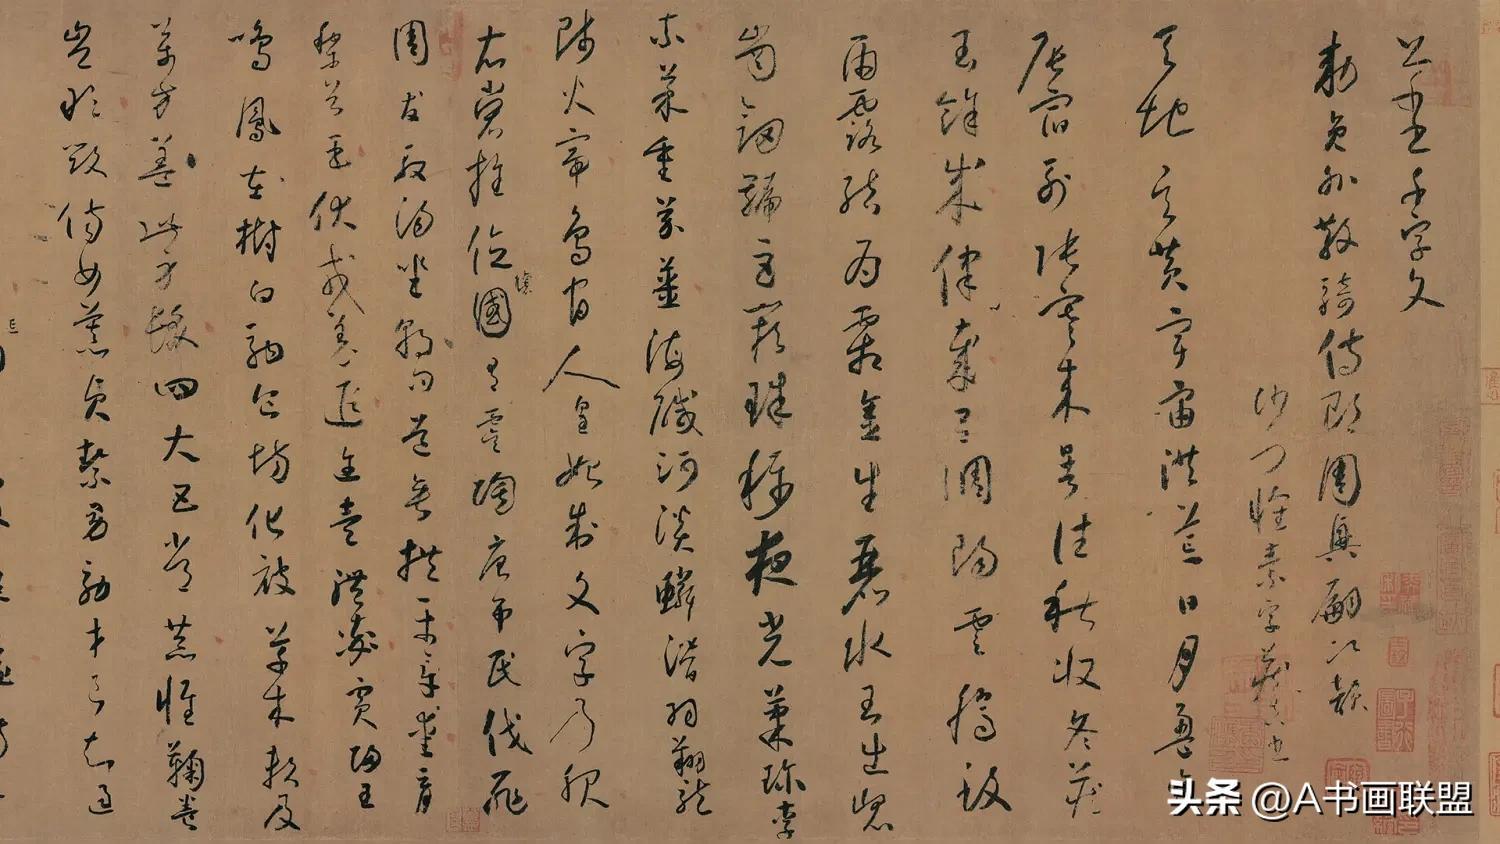 書千字文
勅員外散騎侍郎周興嗣次韻
沙門懷素字藏真書
天地玄黃宇宙洪荒日月盈昃
辰宿列張寒來暑往秋收冬藏
閏餘成律歲呂調陽雲騰致
雨露結為霜金生麗水玉出崑
崗劍號巨闕珠稱夜光菓珍李
柰菜重芥薑海鹹河淡鱗潛羽翔龍
師火帝鳥官人皇始制文字乃服
衣裳推位讓國有虞陶唐弔民伐罪
周發殷湯坐朝問道垂拱平章愛育
黎首臣伏戎羌遐邇壹體率賓歸王
鳴鳳在樹白駒食場化被草木賴及
萬方蓋此身髮四大五常恭惟鞠養
豈敢毀傷女慕貞絜男效才良知過
头条 @A书画联盟